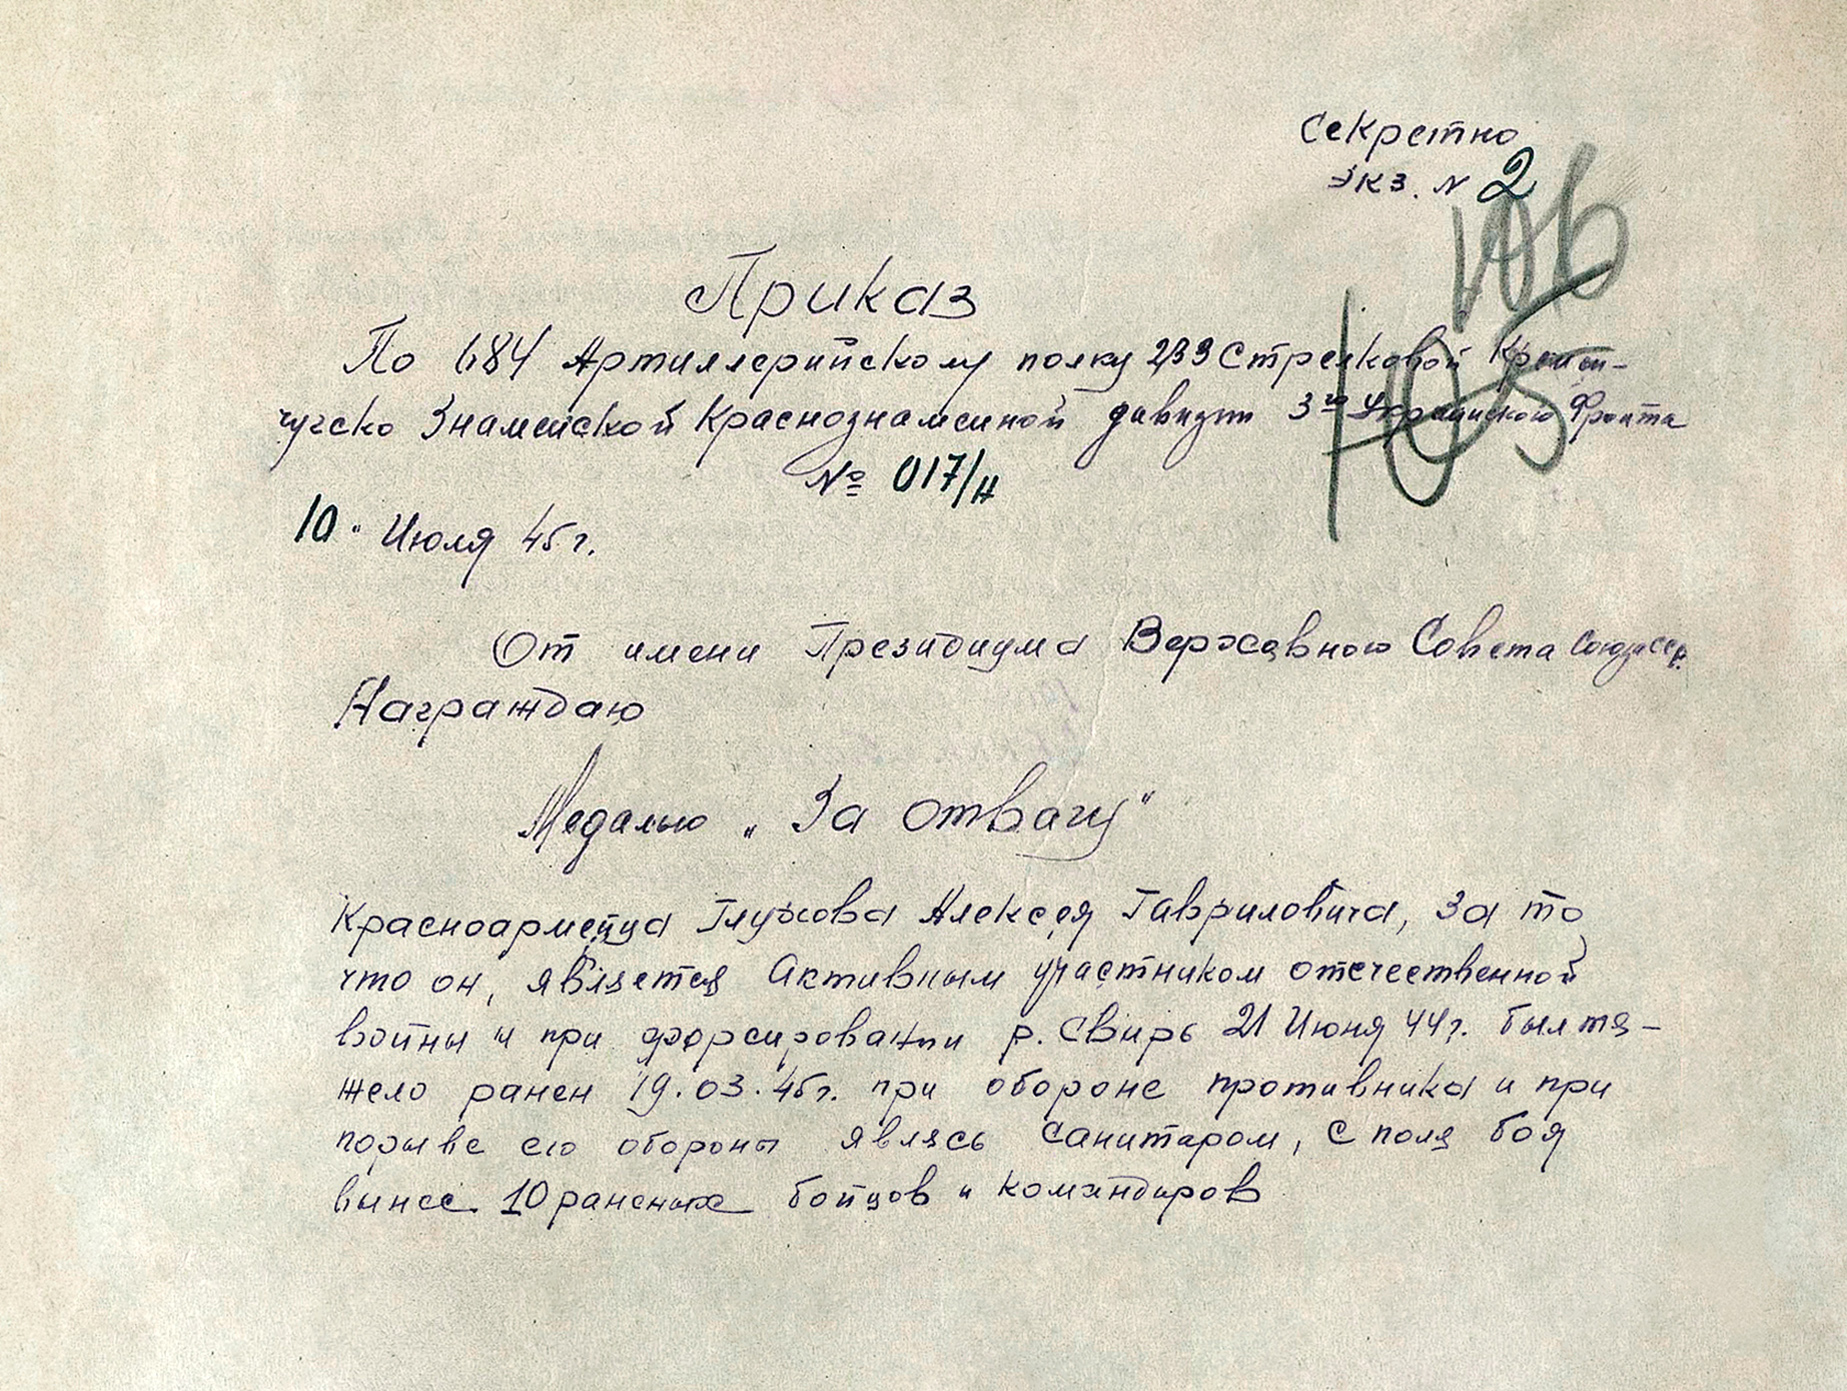 Секретно
Экз. N 2
106
105
Приказ
По 684 Артиллерийскому полку 233 Стрелковой Кремен-
чугско Знаменской Краснознаменной дивизии 3го Украинского Фронта
№ 017/н
10 " Июля 45 г.
От имени Президиума Верховного Совета Союза ССР.
Награждаю
Медалью „ За отвагу "
Красноармейца Глухова Алексея Гавриловича, за то
что он, является Активным участником отечественной
войны и при форсировании р. Свирь 21 Июня 44 г. был тя-
жело ранен 19.03.45 г. при обороне противника и при
порыве его обороны являясь санитаром, с поля боя
вынес 10 раненых бойцов и командиров